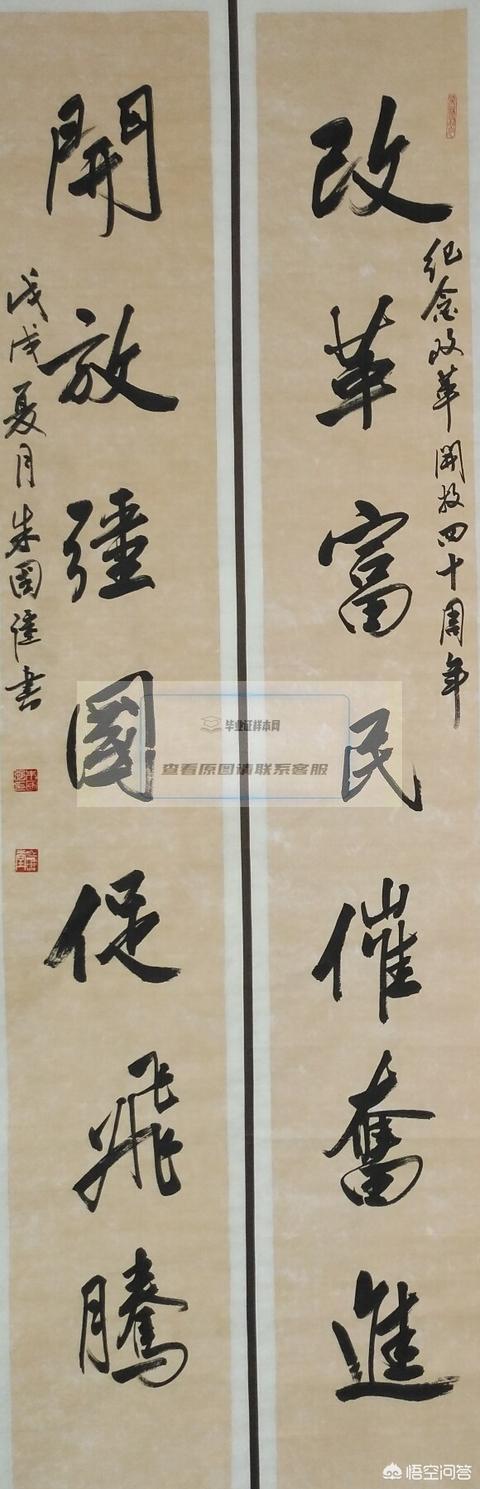 紀念改革開放四十周年
改革富民催奮進
開放彊國促飛騰
戊戌夏月朱國彊書
毕业证样本网
查看原图请联系客服
悟空问答